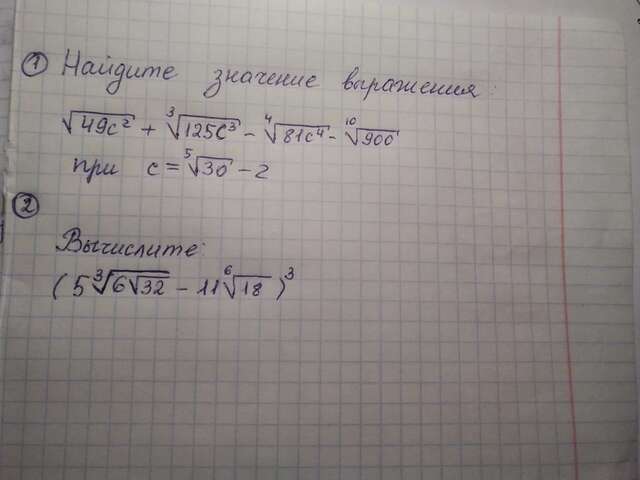 ① Найдите значение выражения:
√49c² + ³√125c³ - ⁴√81c⁴ - ¹⁰√900
при c = ⁵√30 - 2
②
Вычислите:
(5 ³√6√32 - 11 ⁶√18)³